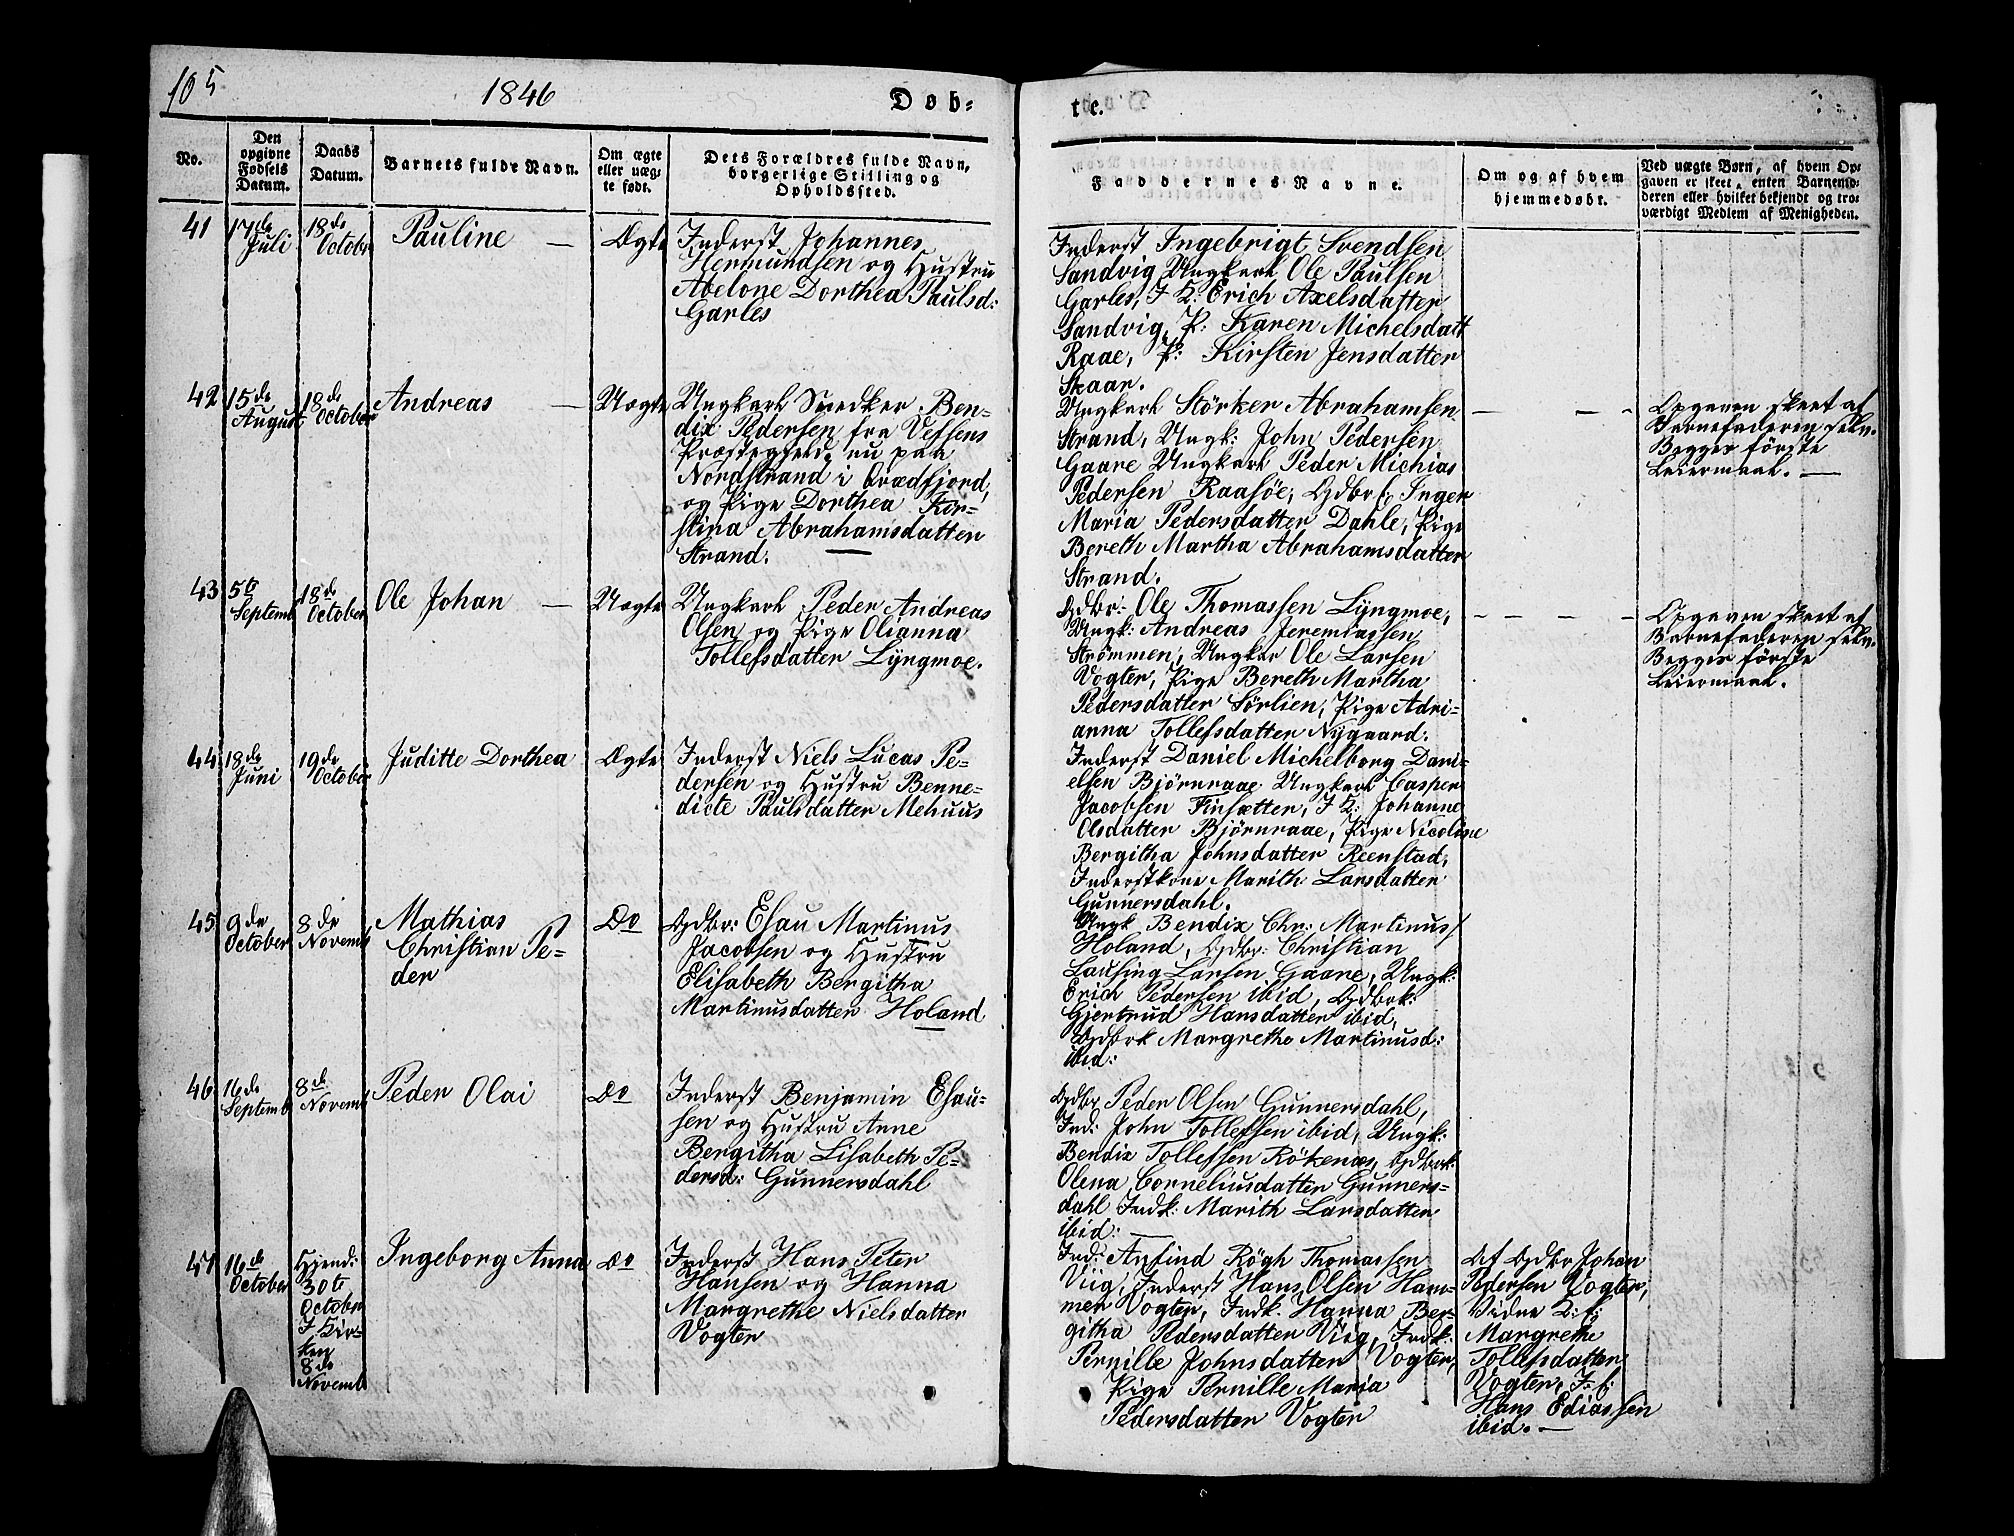 105
1846
Døb-
te.
No.
Den opgivne Fødsels Datum.
Daabs Datum.
Barnets fulde Navn.
Om ægte eller uægte født.
Dets Forældres fulde Navn, borgerlige Stilling og Opholdssted.
Faddernes Navne.
Om og af hvem hjemmedøbt.
Ved uægte Børn, af hvem Opgaven er skeet, enten Barnemoderen eller hvilket bekjendt og troværdigt Medlem af Menigheden.
41
17de Juli
18de October
Pauline —
Ægte
Inderst Johannes
Hermundsen og Hustru
Abelone Dorthea Paulsd:
Garles
Inderst Ingebrigt Svendsen
Sandvig, Ungkarl Ole Paulsen
Garles, I K: Erich Axelsdatter
Sandvig, P: Karen Michelsdatt
Raae, P: Kirsten Jensdatter
Skaar.
42
15de August
18de October
Andreas —
Uægte
Ungkarl Snedker Ben-
dix Pedersen fra Vefsens
Præstegjeld, nu paa
Nordstrand i
og Pige Dorthea Kir-
stina Abrahamsdatter
Strand. —
Ungkarl Störker Abrahamsen
Strand, Ungk: John Pedersen
Gaare Ungkarl Peder Michias
Pedersen Raasöe, Gdbr k Inger
Maria Pedersdatter Dahle, Pige
Bereth Martha Abrahamsdatter
Strand.
— — -
Opgaven skeet af
Barnefaderen selv.
Begges förste
Leiermaal. —
43
5te Septemb
18de October
Ole Johan —
Uægte
Ungkarl Peder Andreas
Olsen og Pige Olianna
Tollefsdatter Lÿngmoe.
Gdbr: Ole Thomassen Lÿngmoe,
Ungk: Andreas Jeremiassen
Strömmen, Ungkar Ole Larsen
Vogter, Pige Bereth Martha
Pedersdatter Sörlien, Pige Adri-
anna Tollefsdatter Nÿgaard.
— — — -
Opgaven skeet af
Barnefaderen selv.
Begges förste
Leiermaal.
44
18de Juni
19de October
Juditte Dorthea
Ægte
Inderst Niels Lucas Pe-
dersen og Hustru Benne-
dicte Paulsdatter Mehuus
Inderst Daniel Michelborg Dani-
elsen Björnraae Ungkarl Casper
Jacobsen Finsætter, I K: Johanne
Olsdatter Björnraae, Pige Nicoline
Bergitha Johnsdatter Reenstad,
Inderstkone Marith Larsdatter
Gunnersdahl.
45
9de October
8de Novemb
Mathias
Christian Pe-
der
Do
Gdbr: Esau Martinus
Jacobsen og Hustru
Elisabeth Bergitha
Martinusdatter Holand
Ungk Bendix Chr: Martinus/
Holand, Gdbr: Christian
Lausing Larsen Gaare, Ungk:
Erich Pedersen ibid, Gdbrk:
Gjertrud Hansdatter ibid,
Gdbrk Margrethe Martinusd:
ibid:
46
16de Septemb
8de Novemb
Peder Olai
Do
Inderst Benjamin Esau-
sen og Hustru Anne
Bergitha Lisabeth Pe-
dersd: Gunnersdahl
Gdbr Peder Olsen Gunnersdahl,
Ind: John Tollefsen ibid, Ungk:
Bendix Tollefsen Rökenæs, Gdbrk:
Olena Corneliusdatter Gunners-
dahl Indk: Marith Larsdatter
ibid: —
47
16de October
Hjemd: 30te October I Kirken 8de Novemb
Ingeborg Anna
Do
Inderst Hans Peter
Hansen og Hanna
Margrethe Nielsdatter
Vogter
Ind: Anfind Rögh Thomassen
Viig, Inderst Hans Olsen Ham-
men Vogter, Indk. Hanna Ber-
githa Pedersdatter Viig, Indk:
Pernille Johnsdatter Vogter,
Pige Pernille Maria
Pedersdatter Vogter
Af Gdbr Johan
Pedersen Vogter,
Vidne K: k:
Margrethe
Tollefsdatter
Vogter, I: k:
Hans Ediassen
ibid. —